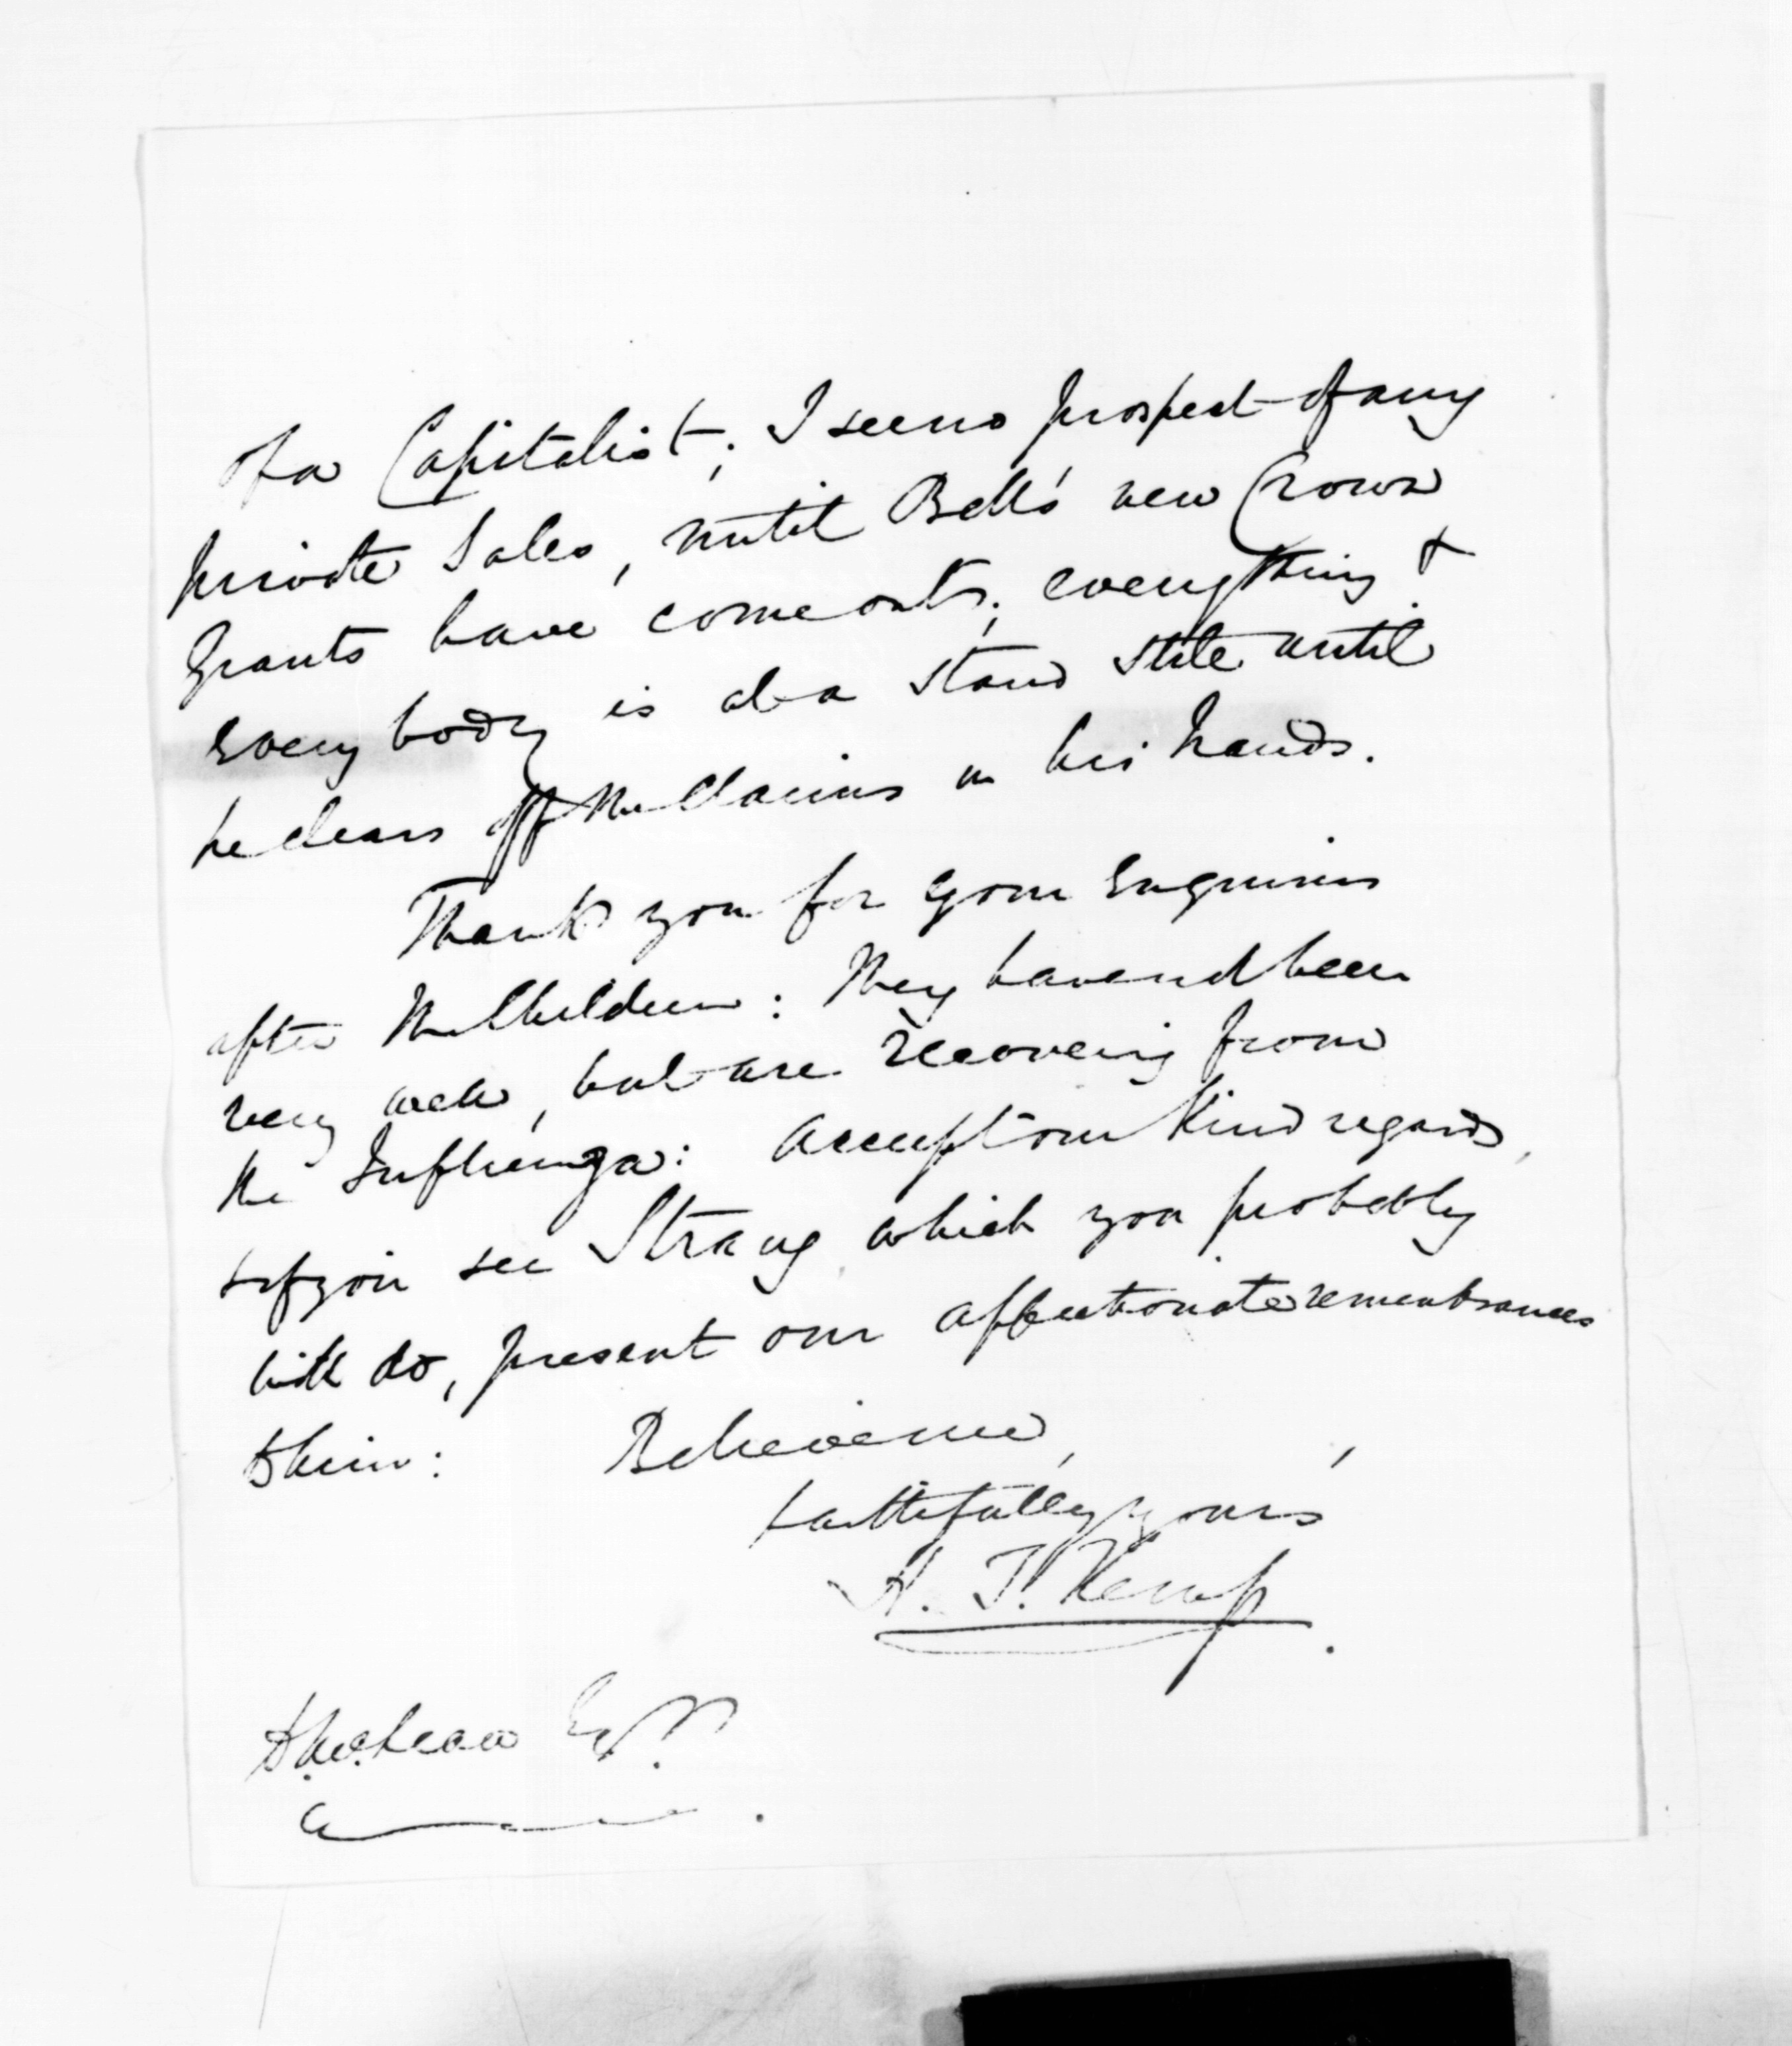 of a Capitalist; I see no prospect of any
private Sales, until Bell's new Crown
Grants have come out; everything &
every body is at a stand stile until
he clears off the Claims in his hands.
Thank you for your enquiries
after the Children: they have not been
very well, but are recovering from
the Influenza: accept our kind regards,
& if you see Strang which you probably
will do, present our affectionate remembrances
to him: Believe me,
faithfully yours,
H. T. Kemp.
D. McLean Esqr.